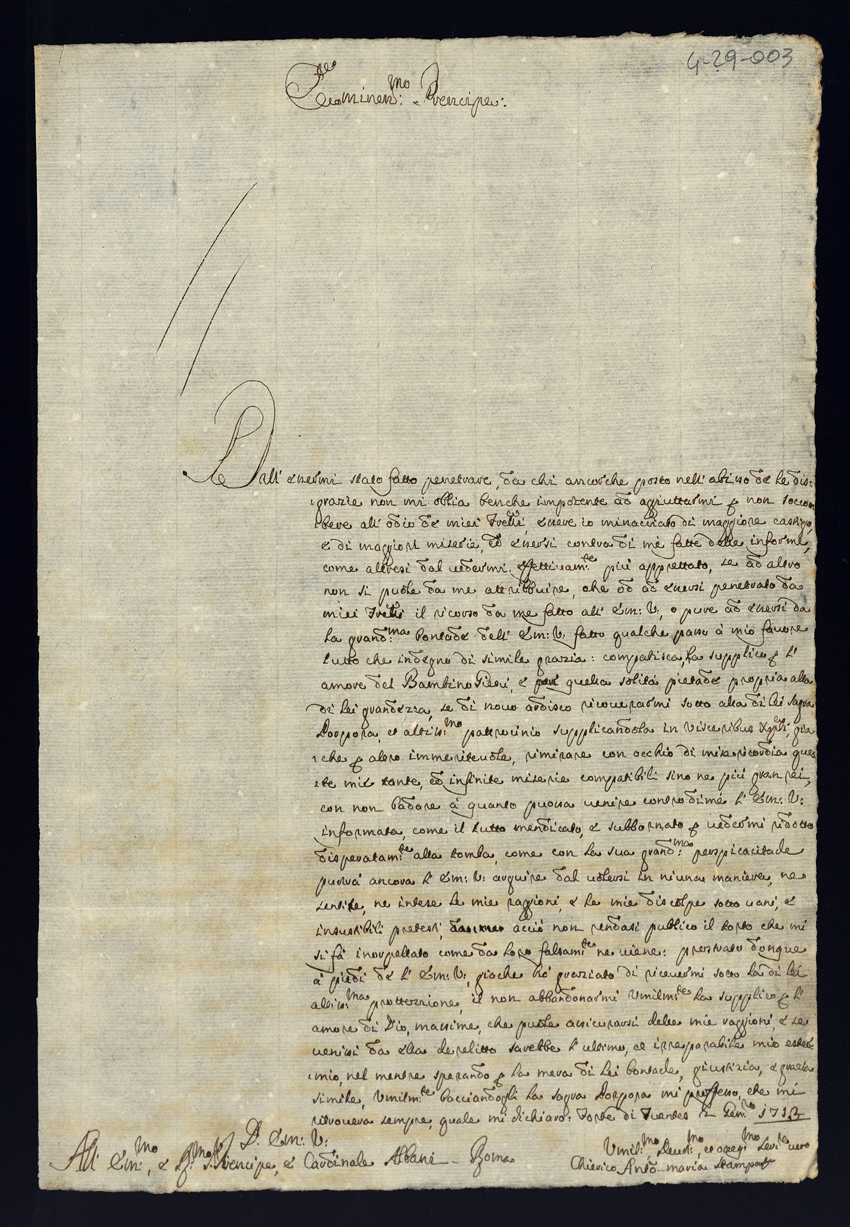 4-29-003
Eminen:mo Prencipe:
Dall' essermi stato fatto penetrare, da chi ancorche posto nell' abisso de le dis-
grazie non mi oblia benche impotente ad aggiuttarmi p non soccom
bere all' odio de miei essere io minacciato di maggiore castigo
e di maggiori miserie, ed essersi contra di me fatte delle informi,
come altresi dal vedermi effettivam:te piú apprettato, se ad altro
non si puole da me attribbuire, che ò ad essersi penetrato da
miei il ricorso da me fatto all' Em: V:, o pure ad essersi da
la grand:ma bontade dell' Em: V: fatto qualche passo à mio favore
tutto che indegno di simile grazia: compatisca, La supplico p l'
amore del Bambino Giesú, e per quella solità pietade propria alla
di Lei grandezza, se di novo ardisco ricoverarmi sotto alla di Lei sagra
Porpora, et altiss:mo pattrocinio supplicandola in visceribus Xpti, gia
che p altro immeritevole, rimirare con occhio di misericordia que
ste mie tante, ed infinite miserie compatibili sino ne piú gran rei,
con non badare à quanto puova venire contro di mé l' Em: V:
informata, come il tutto mendicato, e subbornato p vedermi ridotto
disperatam:te alla tomba, come con la sua grand:ma perspicacitade
purrà ancora l' Em: V: arguire dal volersi in niuna maniera, ne
sentite, ne intese le mie raggioni, e le mie discolpe sotto vani, e
insussibili pretesti, acciò non rendasi publico il torto che mi
si fà inorpellato come da loro falsam:te ne viene: prostrato donque
a' piedi de l' Em: V:, gioche hà graziato di ricevermi sotto la di Lei
altiss:ma prottezzione, il non abbandonarmi Umilm:te La supplico p l'
amore di Dio, massime, che puole assicurarsi delle mie raggioni, e se
venissi da ella derelitto sarebbe l' ultimo, et irreparabile mio ester-
mio, nel mentre sperando p la mera di Lei bontade, giustizia, e grazia
simile, Umilm:te bacciandogli la sagra Porpora mi professo, che mi
ritroverà sempre, quale mi dichiaro: Forte di Fuentes 12 Gen:ro 1713
D. Em: V:
All' Em:mo, e R:mo Prencipe, e Cardinale Albani - Roma
Umil:mo, Devot:mo, et obleg:mo Serv:re vero
Chierico Anto- maria Stampa